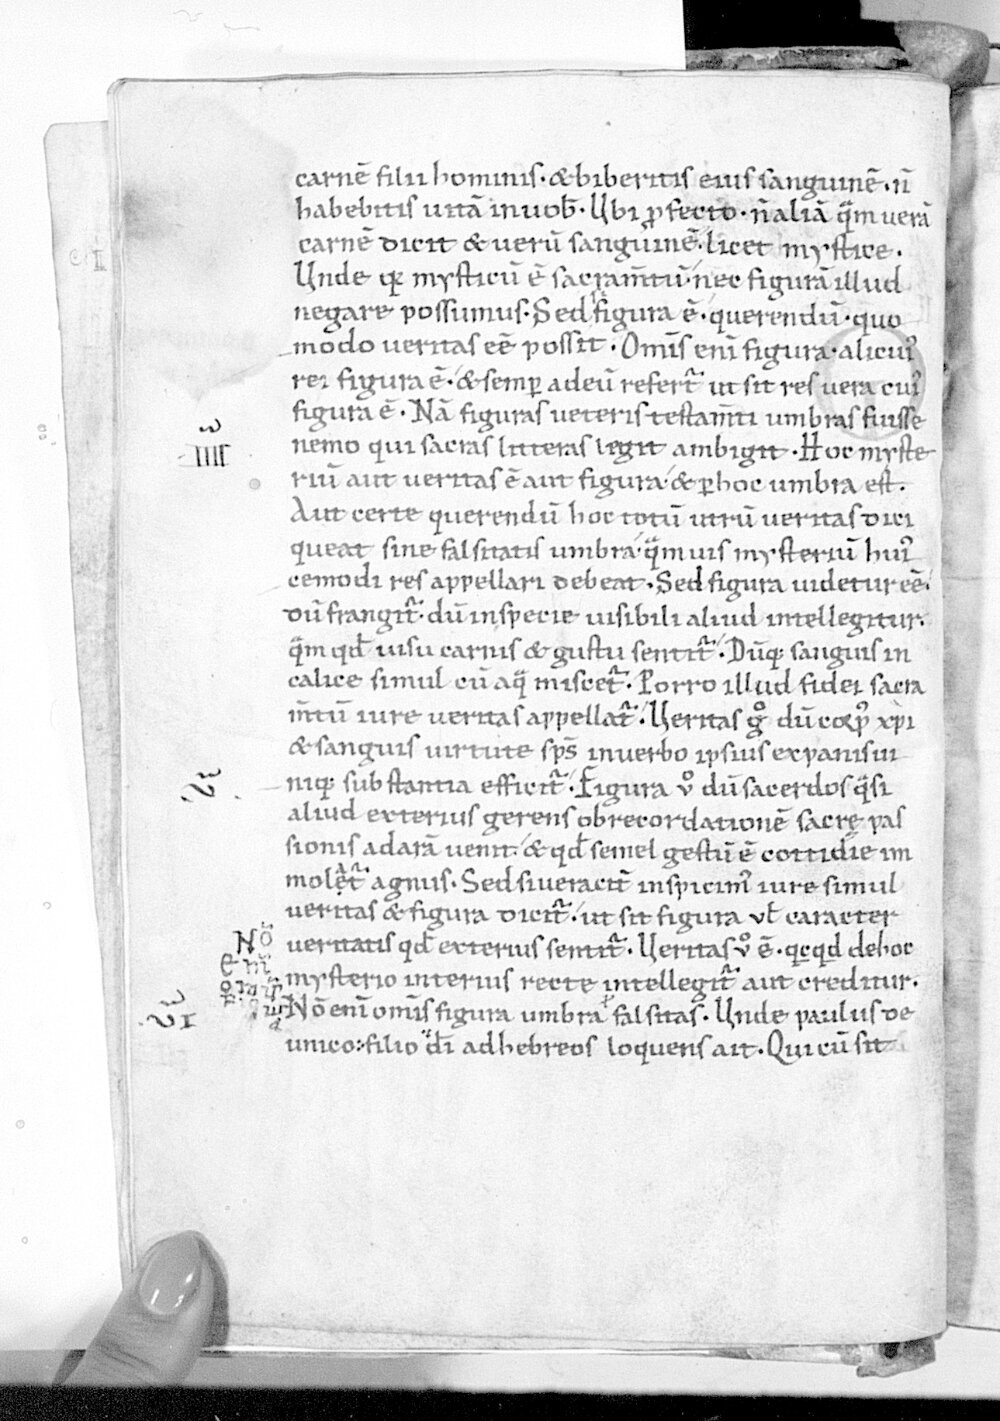 carnē filii hominis · & biberitis eius sanguinē · n̄
habebitis uitā in uob̄ · Ubi ꝓfecto · n̄ aliā quā uerā
carnē dicit & uerū sanguinē · licet mystice ·
Unde quia mysticū ē sacram̄tū · nec figurā illud
negare possumus · Sed si figura ē · querendū · quo
modo ueritas eē possit · Omīs eni figura · alicui᾽
rei figura ē · & semꝑ ad eū refert᷑ ut sit res uera cui᾽
figura ē · Nā figuras ueteris testam̄ti umbras fuisse
nemo qui sacras litteras legit ambigit · Hoc myste
riū aut ueritas ē aut figura · & ꝑ hoc umbra est .
Aut certe querendū hoc totū utrū ueritas dici
queat sine falsitatis umbra · quāuis mysteriū hui᾽
cemodi res appellari debeat · Sed figura uidetur eē ·
dū frangit᷑ · dū in specie uisibili aliud intellegitur .
quā qd̄ uisu carnis & gustu sentit᷑ · Dūq; sanguis in
calice simul cū aqua miscet᷑ · Porro illud fidei sacra
m̄tū iure ueritas appellat᷑ · Ueritas gͦ dū corp᾽ xp̄i
& sanguis uirtute sp̄s in uerbo ipsius ex panis ui
niq; substantia efficit᷑ · Figura uͦ dū sacerdos quasi
aliud exterius gerens ob recordationē sacrę pas
sionis ad arā uenit · & qd̄ semel gestū ē cottidie im
molet᷑ agnus · Sed si ueracit̄ inspicim᾽ iure simul
ueritas & figura dicit᷑ · ut sit figura uł caracter
ueritatis qd̄ exterius sentit᷑ · Ueritas uͦ ē · qcqd de hoc
mysterio interius recte intellegit᷑ aut creditur ·
Nō enī omīs figura umbra ł falsitas · Unde paulus de
unico filio dī ad hebreos loquens ait · Qui cū sit
IIII
Nō